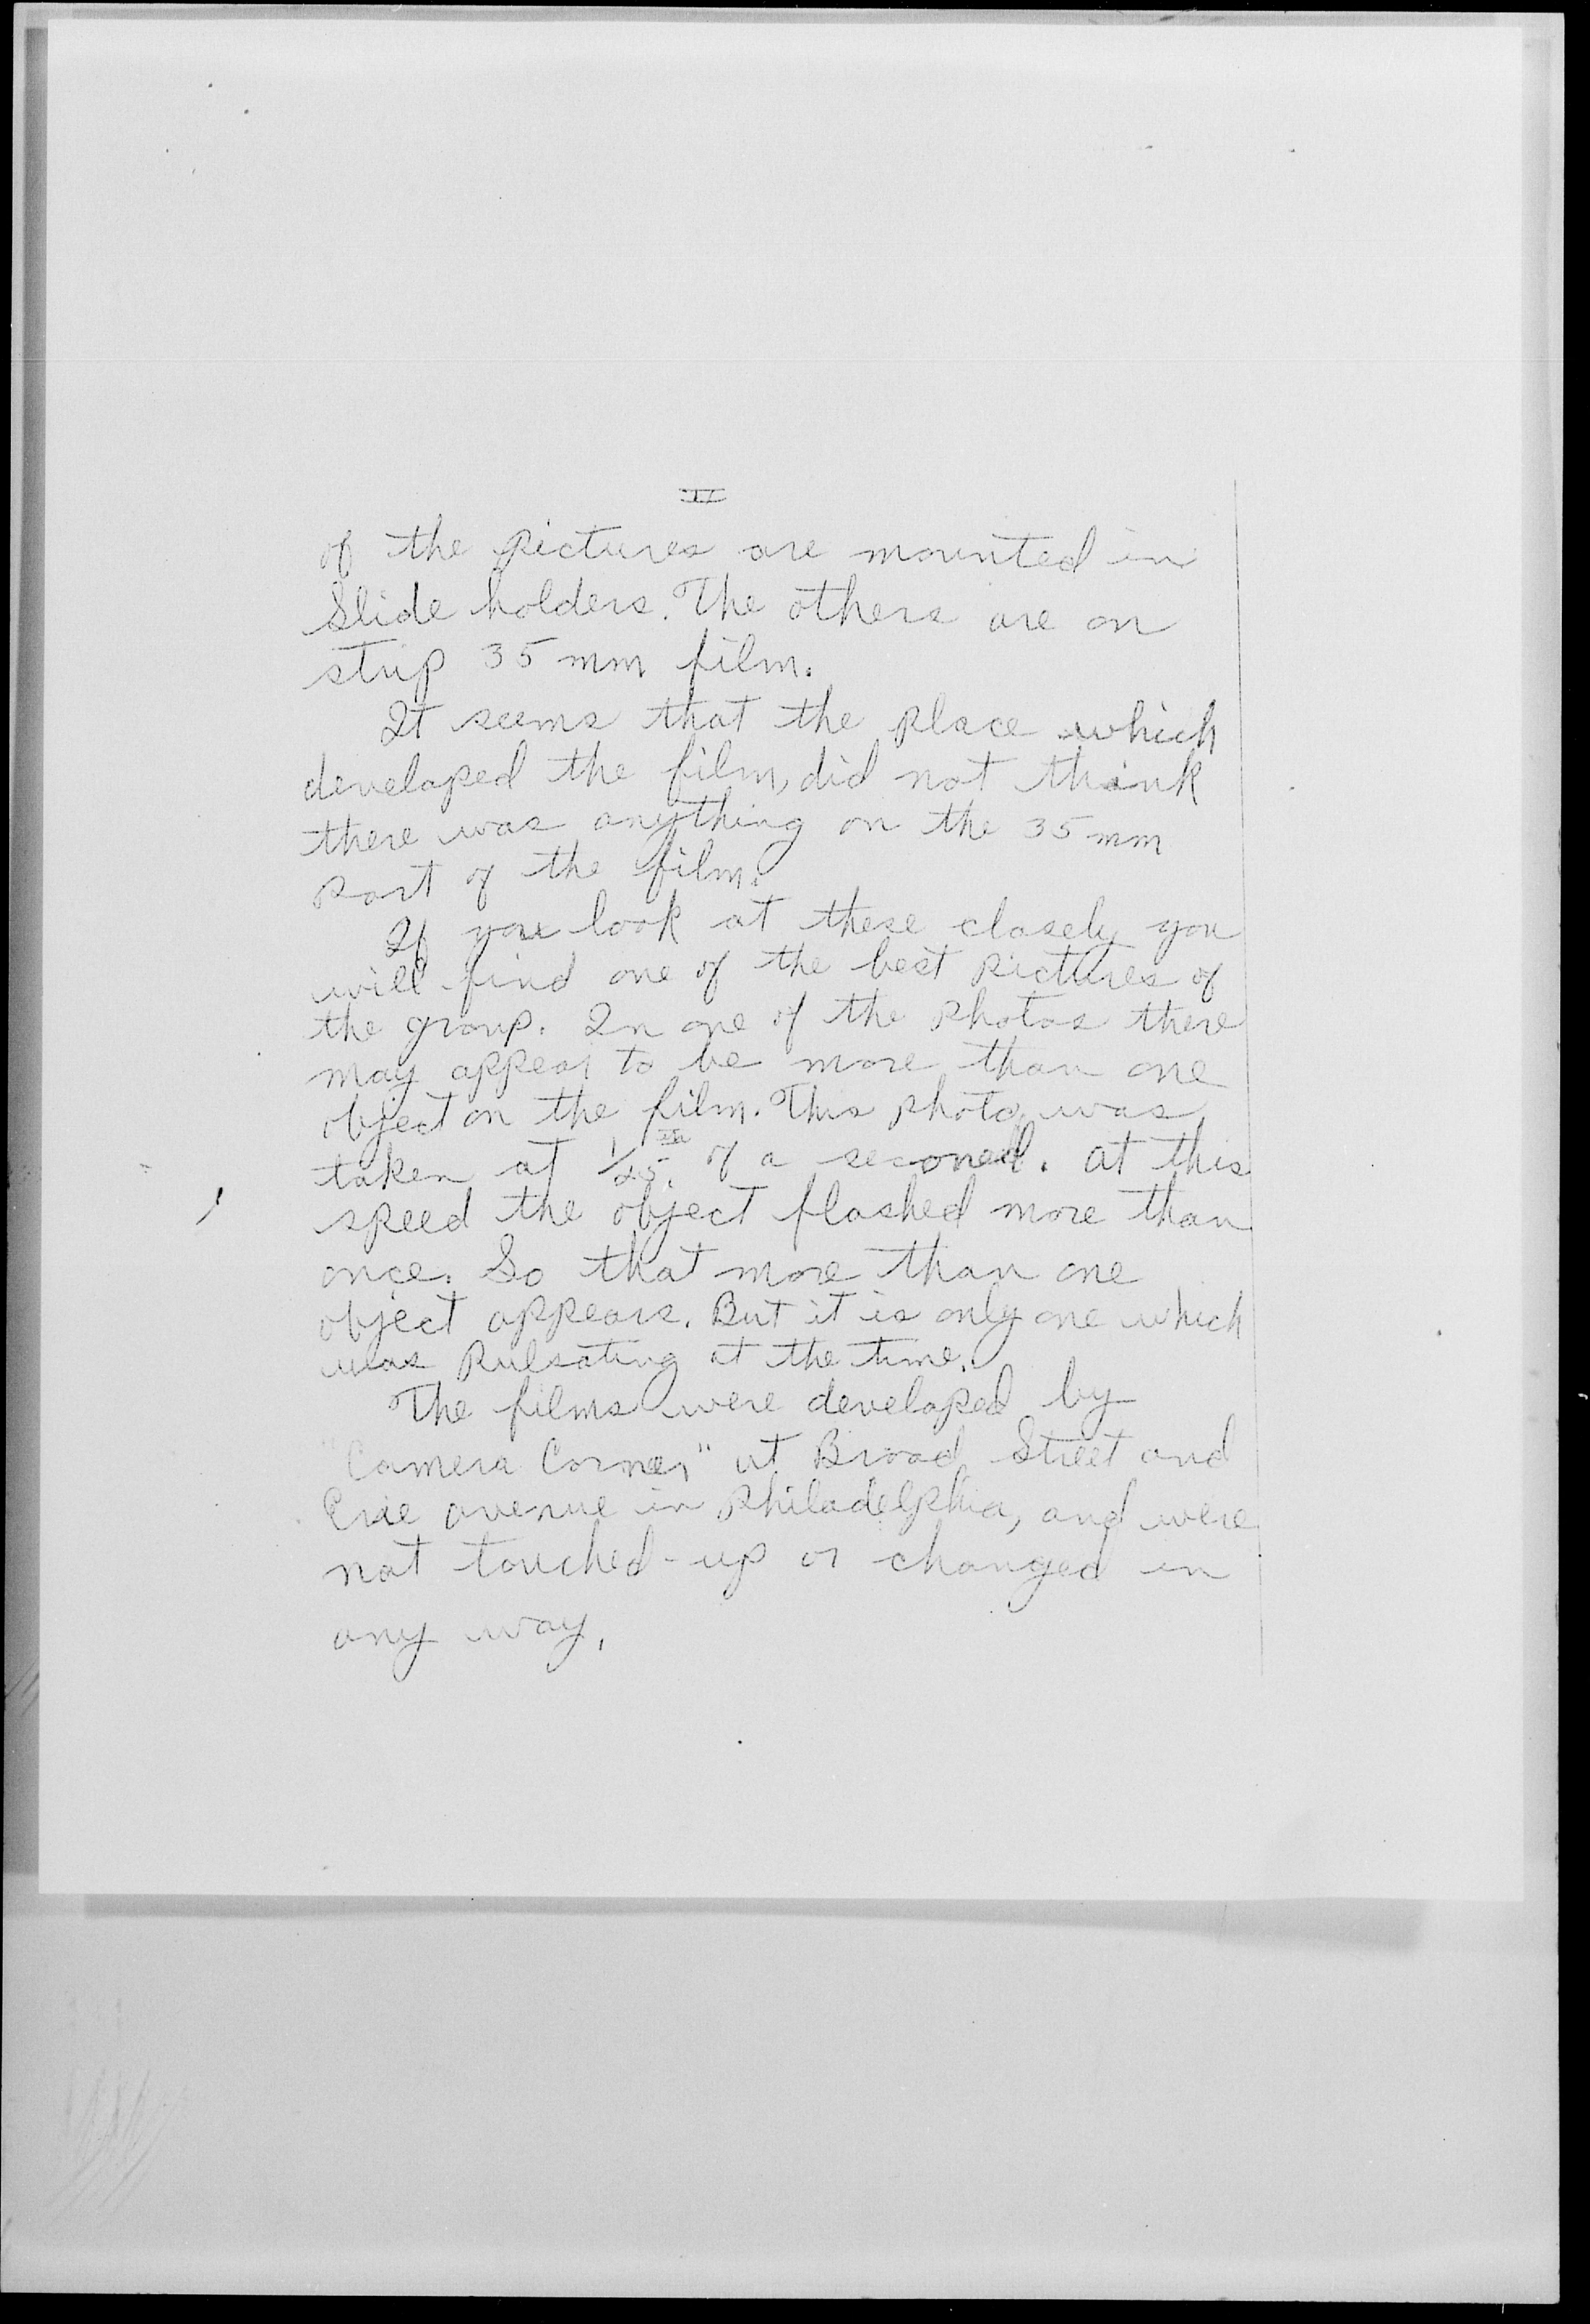 II
of the pictures are mounted in
Slide holders. The others are on
strip 35 mm film.
It seems that the place which
developed the film, did not think
there was anything on the 35 mm
part of the film.
If you look at these closely you
will find one of the best pictures of
the group. In one of the photos there
may appear to be more than one
object on the film. This photo was
taken at 1/25th of a second. At this
speed the object flashed more than
once. So that more than one
object appears. But it is only one which
was pulsating at the time.
The films were developed by
"Camera Corner" at Broad Street and
Erie avenue in Philadelphia, and were
not touched-up or changed in
any way.